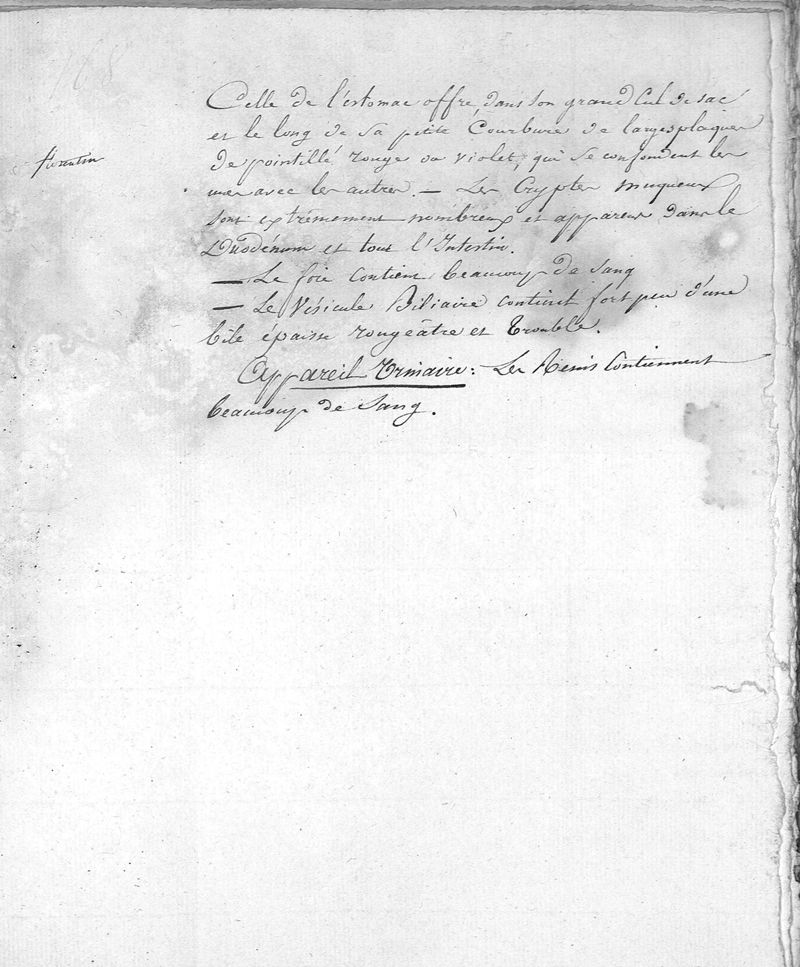 168
Celle de l'estomac offre, dans son grand Cul de sac
et le long de sa petite Courbure de larges plaques
de pointillé, rouge ou violet, qui se confondent les
unes avec les autres. — Les Cryptes muqueux
sont extrêmement nombreux et apparens dans le
Duodénum et tout l'Intestin.
— Le foie contient beaucoup de sang
— Le Vésicule Biliaire contient fort peu d'une
bile épaisse rougeâtre et trouble.
Appareil Urinaire : Les Reins Contiennent
beaucoup de Sang.